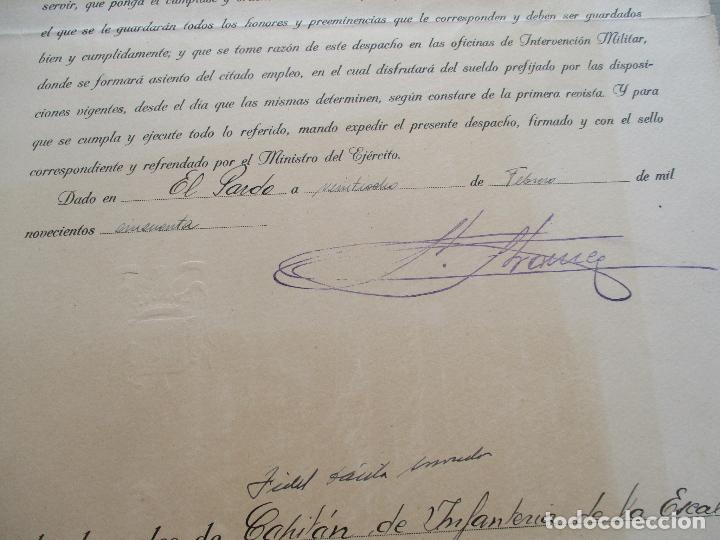 servir, que ponga el
el que se le guardarán todos los honores y preeminencias que le corresponden y deben ser guardados
bien y cumplidamente; y que se tome razón de este despacho en las oficinas de Intervención Militar,
donde se formará asiento del citado empleo, en el cual disfrutará del sueldo prefijado por las disposi-
ciones vigentes, desde el día que las mismas determinen, según constare de la primera revista. Y para
que se cumpla y ejecute todo lo referido, mando expedir el presente despacho, firmado y con el sello
correspondiente y refrendado por el Ministro del Ejército.
Dado en El Pardo a veintiocho de Febrero de mil
novecientos cincuenta
F. Franco
Fidel Dávila Arrondo
de Capitán de Infantería de la Escal
todocoleccion.net